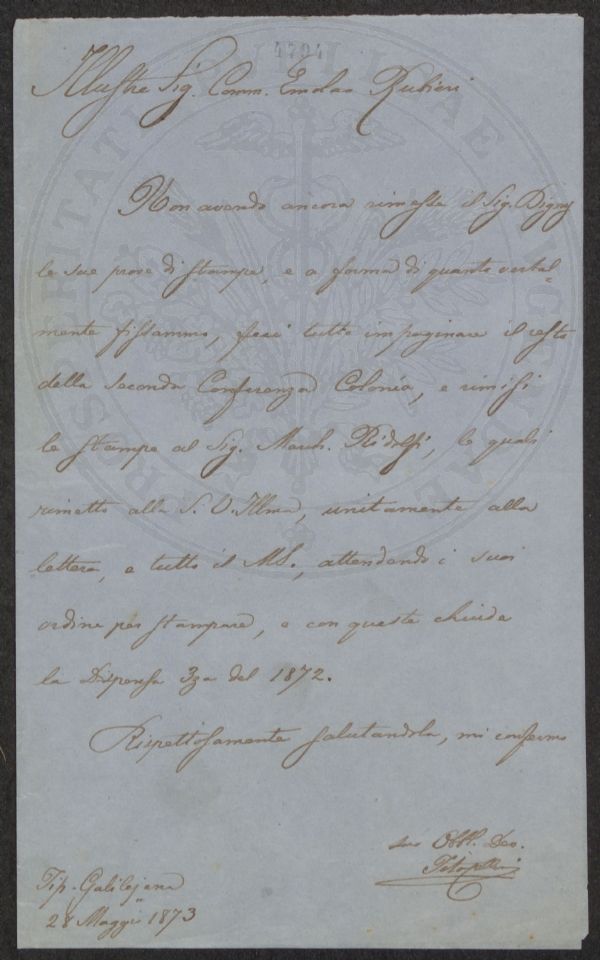 4794
PROSPERITATI PUBLICAE AUGENDAE
Illustre Sig. Comm. Emolao Rubieri
Non avendo ancora rimesse il Sig. Digny
le sue prove di stampa, e a forma di quanto verbal=
mente fissammo, feci tutto impaginare il resto
della seconda Conferenza Colonia, e rimisi
le stampe al Sig. March. Ridolfi, le quali
rimetto alla S. V. Illma, unitamente alla
lettera, e tutto il MS., attendendo i suoi
ordini per stampare, e con queste chiude
la Dispensa 3za del 1872.
Rispettosamente salutandola, mi confermo
suo Obb. Dev.
Tip. Galilejana
28 Maggio 1873